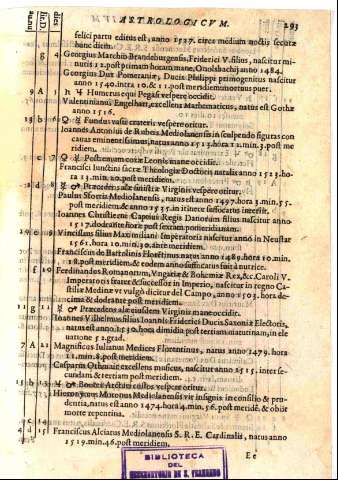 dies
lit.D.
aur.nu
ASTROLOGICVM. 293
felici partu editus est, anno 1537. circa medium noctis secutæ
hanc diem.
g 4 Georgius Marchio Brandeburgensis, Friderici V. filius, nascitur mi-
nutis 12. post primam horam mane, Onoldsbachij anno 1484.
Georgius Dux Pomeraniæ, Ducis Philippi primogenitus nascitur
anno 1540. intra 10. & 11. post meridiem mortuus puer.
9 A 5 ♄ ♃ Humerus equi Pegasi vespere occidit.
Valentinianus Engelhart, excellens Mathematicus, natus est Gothæ
anno 1516.
b 6 Fundus vasis crateris vespere oritur.
Ioannes Antonius de Rubeis Mediolanensis in sculpendo figuras con
cauas eminentissimus, natus anno 1513. hora 11. min. 3. post me
ridiem.
c 7 Postremum coxæ Leonis mane occidit.
Francisci Iustini sacræ Theologiæ Doctoris natalis anno 1513. ho-
ra 13. min. 20. post meridiem.
d 8 Præcedens alæ sinistræ Virginis vespere oritur.
Paulus Sfortia Mediolanensis, natus est anno 1497. hora 3. min. 55.
post meridiem, & anno 1535. in itinere suffocatus interiit.
Ioannes Christierne Capoiui Regis Danorum filius nascitur anno
1517. dodrante horæ post sextam pomeridianam.
e 9 Vincislaus filius Maximiliani Imperatoris nascitur anno in Neustat
1561. hora 10. min. 30. ante meridiem.
Franciscus de Bartolinis Florentinus natus anno 1489. hora 10. min.
18. post meridiem, & eodem anno suffocatus fuit à nutrice.
f 10 Ferdinandus Romanorum, Vngariæ & Bohemiæ Rex, &c. Caroli V.
Imperatoris frater & successor in Imperio, nascitur in regno Ca-
stiliæ Medinæ vt vulgò dicitur del Campo, anno 1503. hora de-
cima & dodrante post meridiem.
g 11 Præcedens alæ eiusdem Virginis mane occidit.
Ioannes Vilhelmus filius Ioannis Friderici Ducis Saxoniæ Electoris,
natus est anno 1530. hora dimidia post tertiam matutinam, in ele
uatione 51. grad.
7 A 12 Magnificus Iulianus Medices Florentinus, natus anno 1479. hora
11. min. 8. post meridiem.
Casparus Othmair excellens musicus, nascitur anno 1515. inter se-
cundam & tertiam post meridiem.
15 b 13 Bootæ Arcturi custos vespere oritur.
Hieronymus Moronus Mediolanensis vir insignis in consilio & pru-
dentia, natus est anno 1474. hora 4. min. 56. post merid. & obijt
morte repentina.
4 d 15 Franciscus Alciatus Mediolanensis S. R. E. Cardinalis, natus anno
1519. min. 46. post meridiem.
Ee
BIBLIOTECA
DEL
OBSERVATORIO DE S. FERNANDO